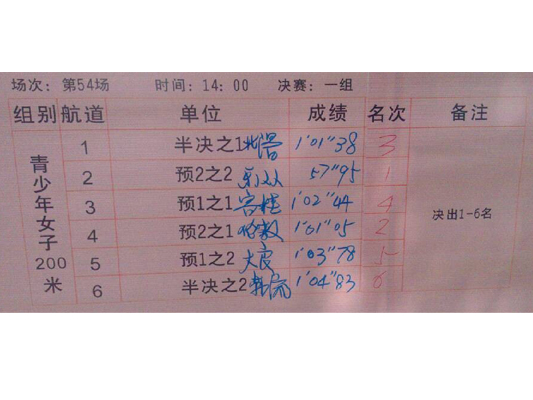 场次：第54场 时间：14：00 决赛：一组
组别 航道 单位 成绩 名次 备注
青少年女子200米
1 半决之1 1'01"38 3
2 预2之2 57"95 1
3 预1之1 容桂 1'02"44 4
4 预2之1 1'01"05 2
5 预1之2 大良 1'03"78 5
6 半决之2 1'04"83 6
决出1-6名